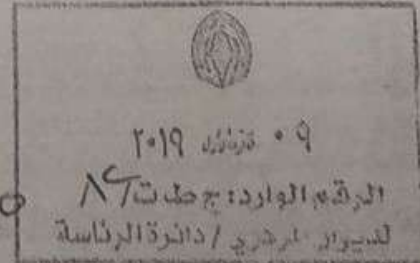 ٠٩ كانون الأول ٢٠١٩
الرقم الوارد: ج ص ت/
الديوان المركزي / دائرة الرئاسة